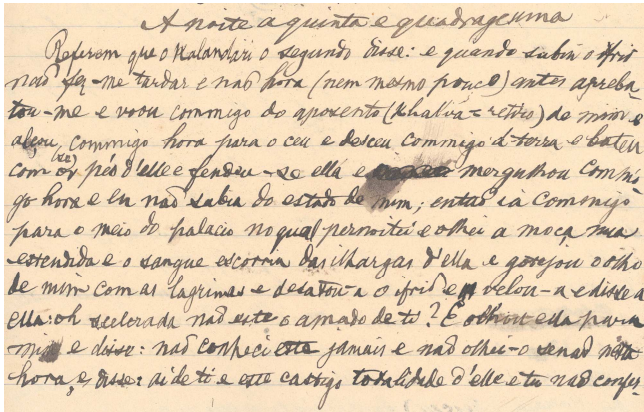 A noite a quinta e quadragesima
Referem que o Kalandari o segundo disse: e quando subiu o ifrid
não fez-me tardar e não hora (nem mesmo pouco) antes apreba
tou-me e voou commigo do aposento (khalua = retiro) de mim e
alçou commigo hora para o ceu e desceu commigo á terra e bateu
com os pés d'elle e fendeu-se ella e mergulhou commi
go hora e eu não sabia do estado de mim; então ia commigo
para o meio do palacio no qual pernoitei e olhei a moça nua
estendida e o sangue escorria das ilhargas d'ella e gotejou o olho
de mim com as lagrimas e desatou-a o ifrid e velou-a e disse a
ella: oh scelerada não este o amado de ti? E olhou ella para
mim e disse: não conheci este jamais e não olhei-o senão nesta
hora, e disse: ai de ti e este castigo totalidade d'elle e tu não confes-